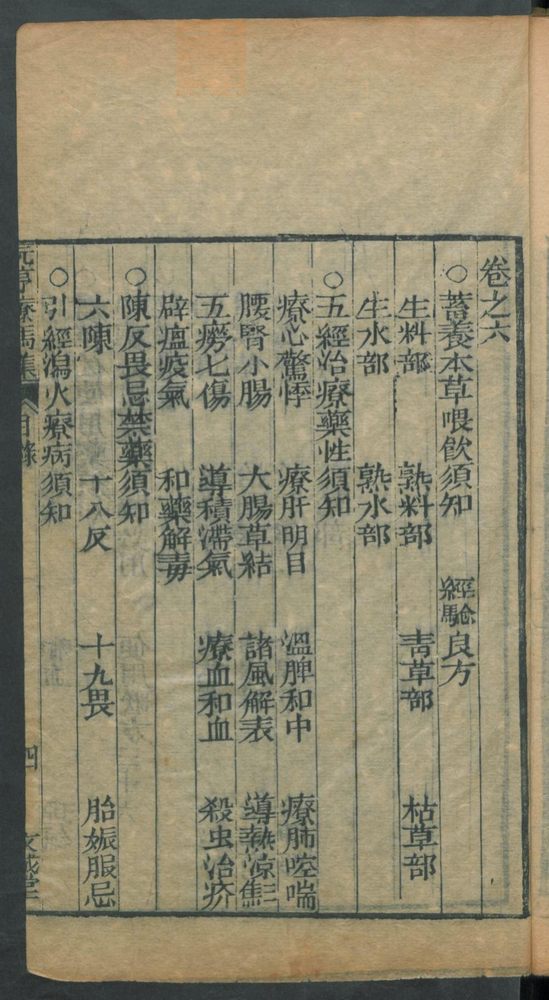 卷之六
○蓄養本草喂飲須知 經驗良方
生料部 熟料部 青草部 枯草部
生水部 熟水部
○五經治療藥性須知
療心驚悸 療肝明目 溫脾和中 療肺咳喘
腰腎小腸 大腸草結 諸風解表 導熱涼焦
五癆七傷 導積滯氣 療血和血 殺虫治疥
辟瘟疫氣 和藥解毒
○陳反畏忌禁藥須知
六陳 十八反 十九畏 胎娠服忌
○引經瀉火療病須知
元亨療馬集 目錄 四 文誠堂